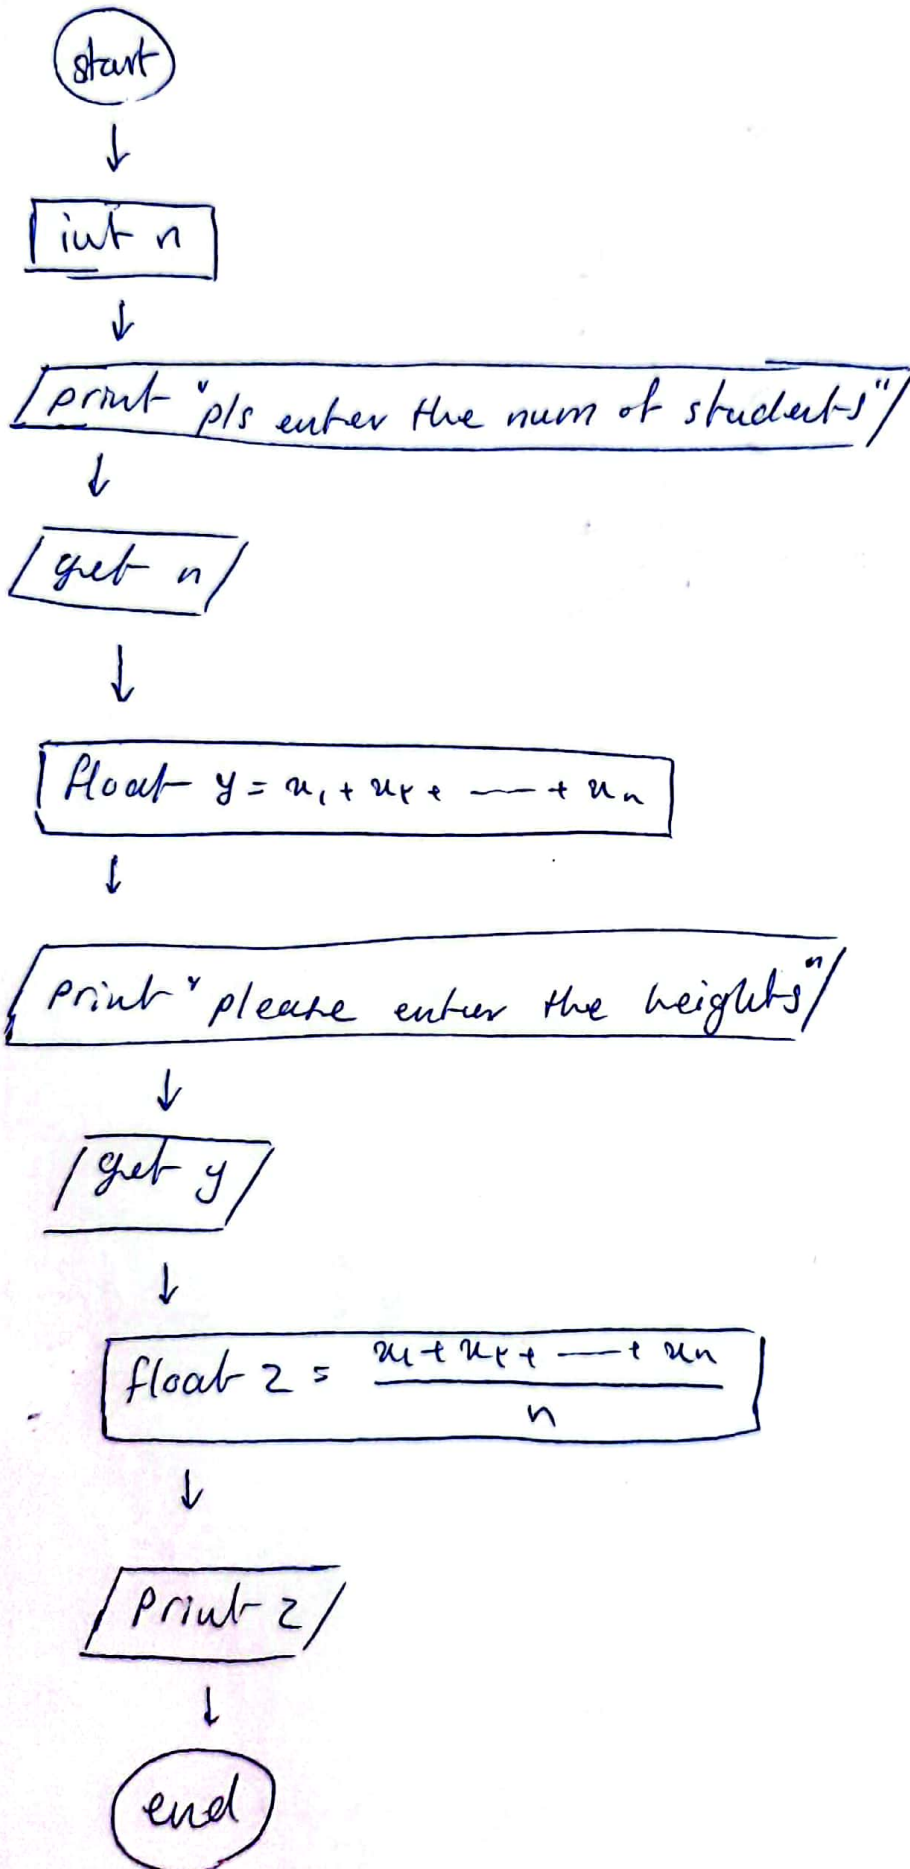 start
int n
print "pls enter the num of students"
get n
float y = x₁ + x₂ + — + xₙ
print "please enter the heights"
get y
float z = x₁ + x₂ + — + xₙ
n
Print z
end